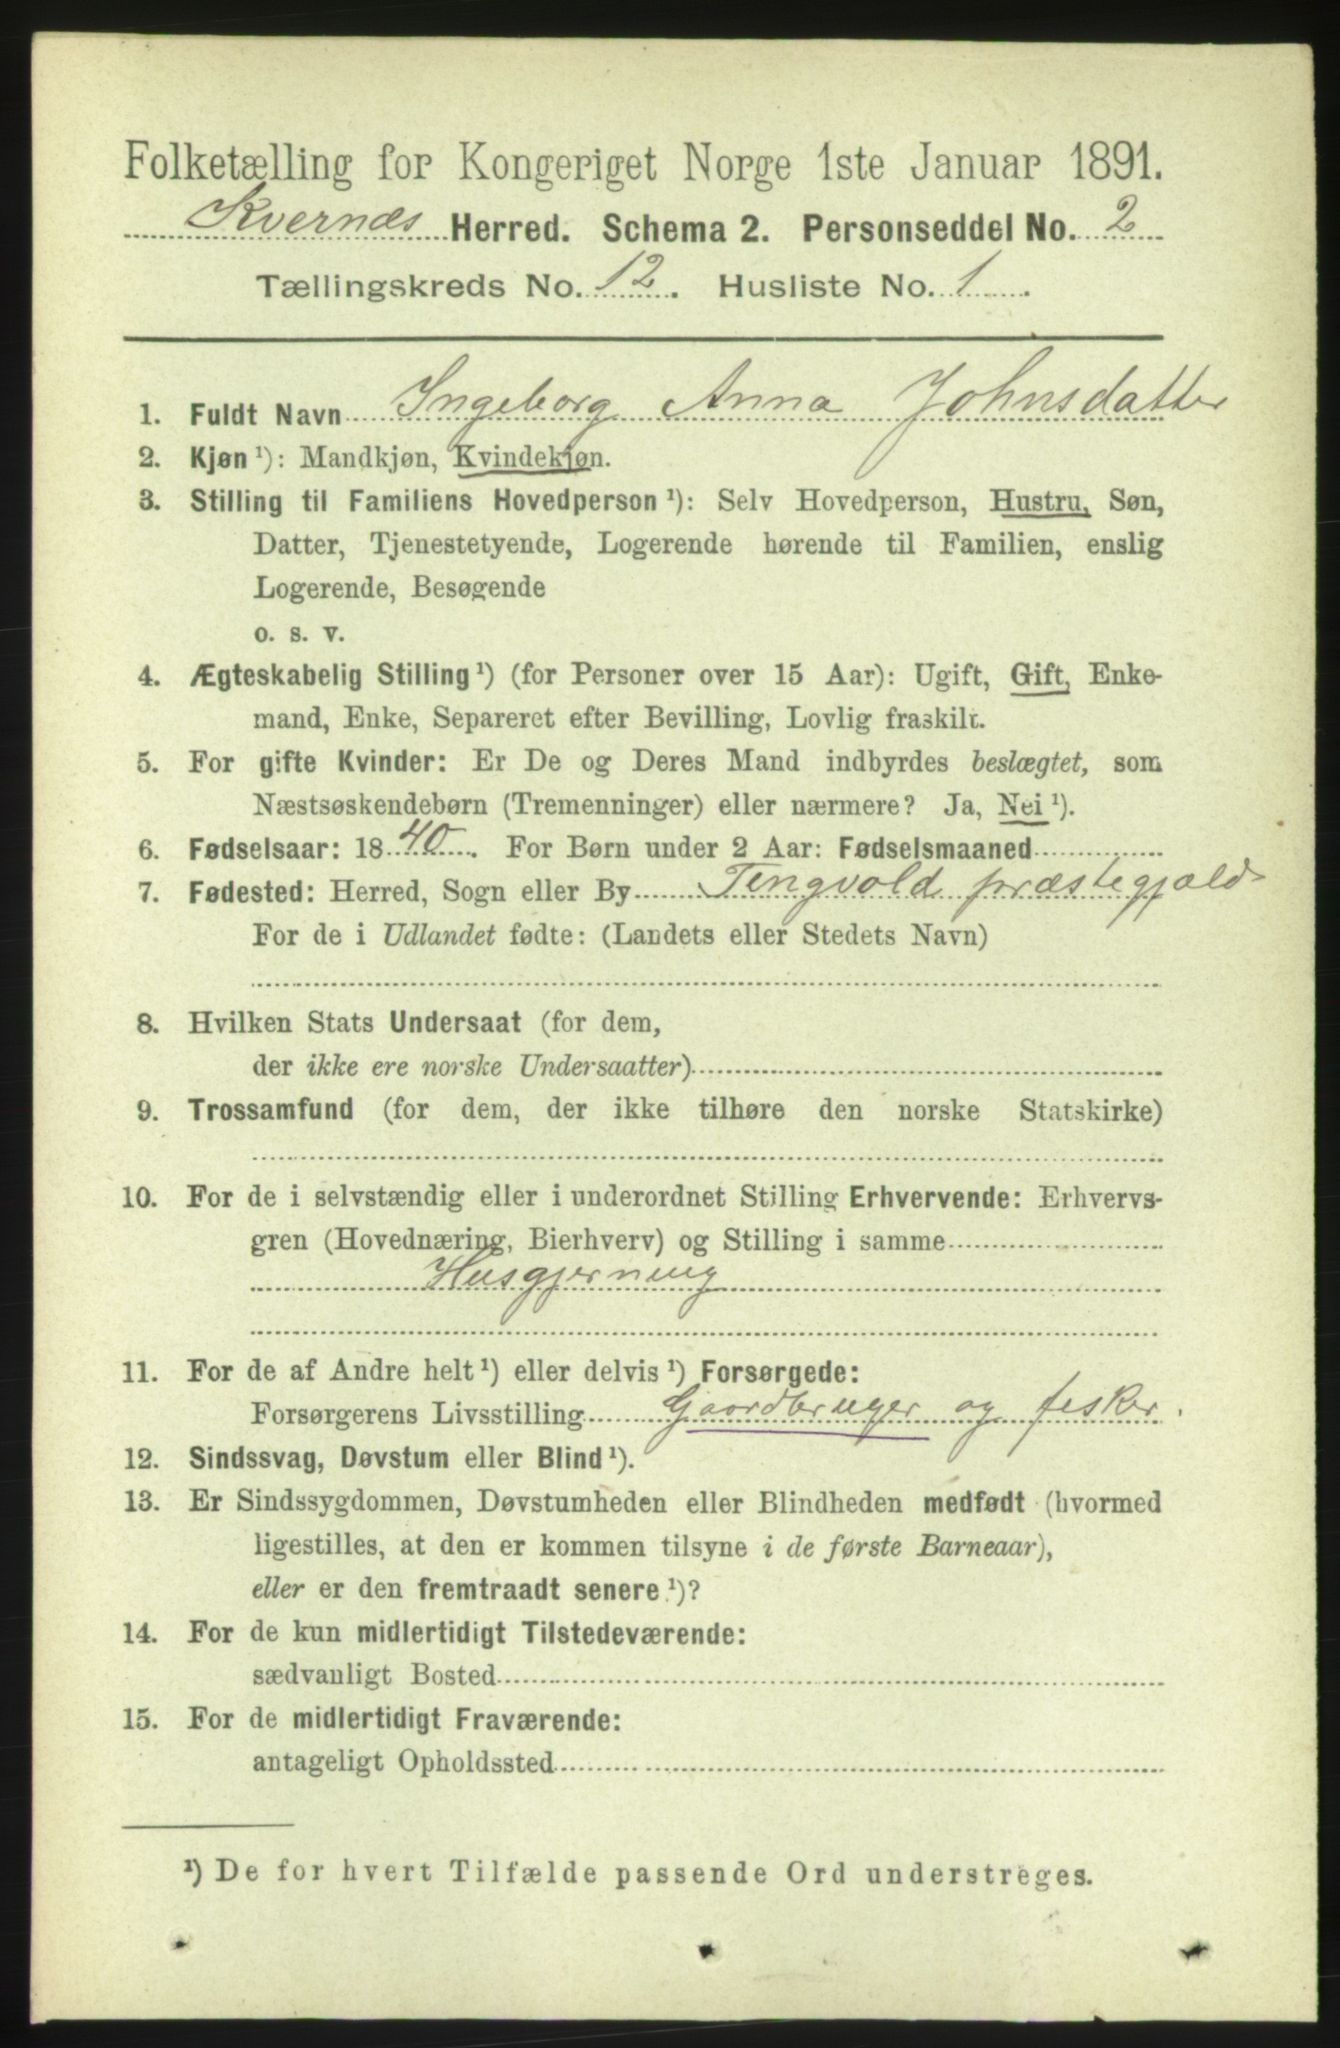 Folketælling for Kongeriget Norge 1ste Januar 1891.
Kvernæs Herred. Schema 2. Personseddel No. 2
Tællingskreds No. 12. Husliste No. 1.
1. Fuldt Navn Ingeborg Anna Johnsdatter
2. Kjøn ¹): Mandkjøn, Kvindekjøn.
3. Stilling til Familiens Hovedperson ¹): Selv Hovedperson, Hustru, Søn,
Datter, Tjenestetyende, Logerende hørende til Familien, enslig
Logerende, Besøgende
o. s. v.
4. Ægteskabelig Stilling ¹) (for Personer over 15 Aar): Ugift, Gift, Enke-
mand, Enke, Separeret efter Bevilling, Lovlig fraskilt.
5. For gifte Kvinder: Er De og Deres Mand indbyrdes beslægtet, som
Næstsøskendebørn (Tremenninger) eller nærmere? Ja, Nei ¹).
6. Fødselsaar: 1840. For Børn under 2 Aar: Fødselsmaaned
7. Fødested: Herred, Sogn eller By Tingvold præstegjæld
For de i Udlandet fødte: (Landets eller Stedets Navn)
8. Hvilken Stats Undersaat (for dem,
der ikke ere norske Undersaatter)
9. Trossamfund (for dem, der ikke tilhøre den norske Statskirke)
10. For de i selvstændig eller i underordnet Stilling Erhvervende: Erhvervs-
gren (Hovednæring, Bierhverv) og Stilling i samme
Husgjerning
11. For de af Andre helt ¹) eller delvis ¹) Forsørgede:
Forsørgerens Livsstilling Gaardbruger og fisker.
12. Sindssvag, Døvstum eller Blind ¹).
13. Er Sindssygdommen, Døvstumheden eller Blindheden medfødt (hvormed
ligestilles, at den er kommen tilsyne i de første Barneaar),
eller er den fremtraadt senere ¹)?
14. For de kun midlertidigt Tilstedeværende:
sædvanligt Bosted
15. For de midlertidigt Fraværende:
antageligt Opholdssted
¹) De for hvert Tilfælde passende Ord understreges.